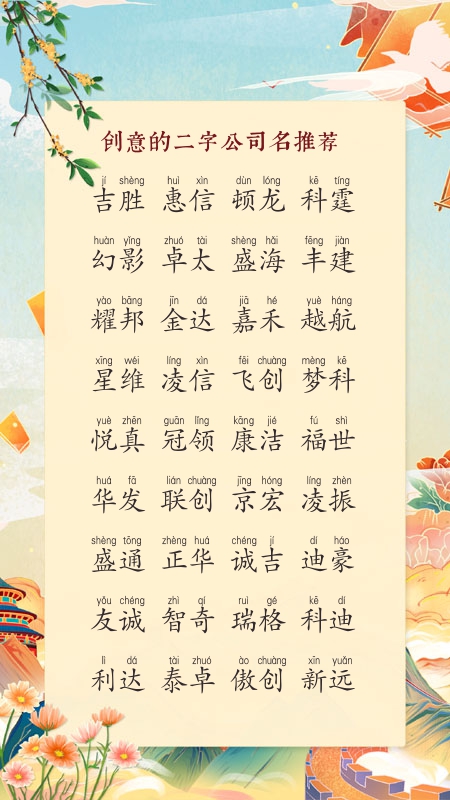 创意的二字公司名推荐
jí shèng huì xìn dùn lóng kē tíng
吉胜 惠信 顿龙 科霆
huàn yǐng zhuó tài shèng hǎi fēng jiàn
幻影 卓太 盛海 丰建
yào bāng jīn dá jiā hé yuè háng
耀邦 金达 嘉禾 越航
xīng wéi líng xìn fēi chuàng mèng kē
星维 凌信 飞创 梦科
yuè zhēn guān lǐng kāng jié fú shì
悦真 冠领 康洁 福世
huá fā lián chuàng jīng hóng líng zhèn
华发 联创 京宏 凌振
shèng tōng zhèng huá chéng jí dí háo
盛通 正华 诚吉 迪豪
yǒu chéng zhì qí ruì gé kē dí
友诚 智奇 瑞格 科迪
lì dá tài zhuó ào chuàng xīn yuǎn
利达 泰卓 傲创 新远